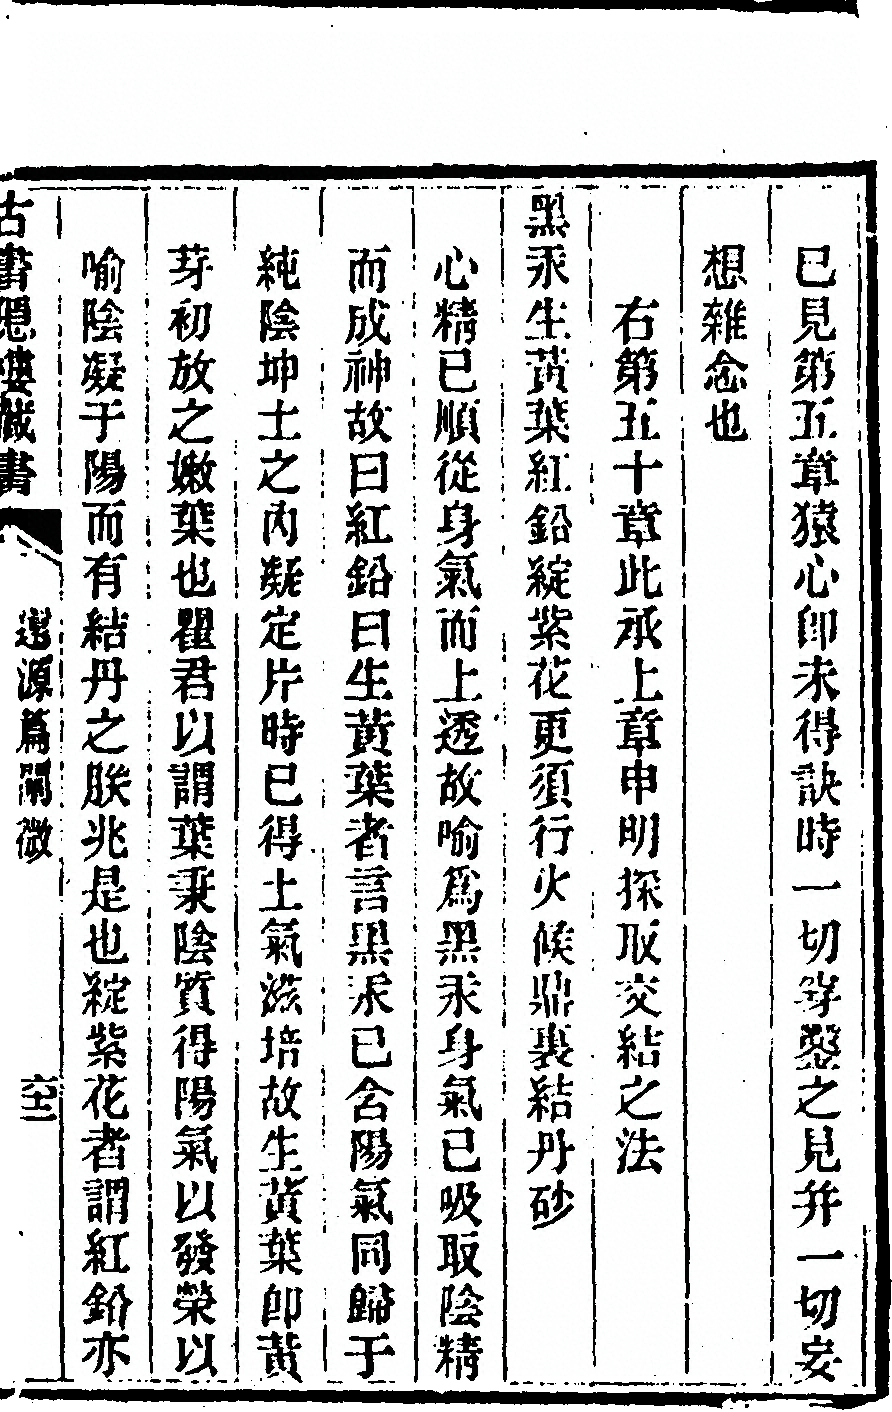 已見第五章猿心卽未得訣時一切穿鑿之見并一切妄
想雜念也
右第五十章此承上章申明採取交結之法
黑汞生黃葉紅鉛綻紫花更須行火候鼎裏結丹砂
心精已順從身氣而上透故喻爲黑汞身氣已吸取陰精
而成神故曰紅鉛曰生黃葉者言黑汞已含陽氣同歸于
純陰坤土之內凝定片時已得土氣滋培故生黃葉卽黃
芽初放之嫩葉也瞿君以謂葉秉陰質得陽氣以發榮以
喻陰凝于陽而有結丹之朕兆是也綻紫花者謂紅鉛亦
古書隱樓藏書
還源篇闡微